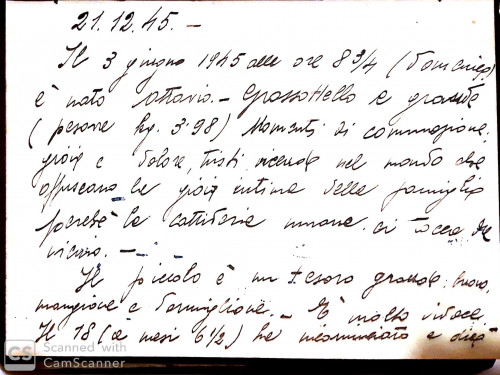 21.12.45. —
Il 3 giugno 1945 alle ore 8 3/4 (domenica)
è nato Ottavio. — Grassottello e grande
(pesava kg. 3.98) Momenti di commozione,
gioia e dolore, tristi vicende nel mondo che
offuscano le gioie intime della famiglia
perché la cattiveria umana ci tocca da
vicino. —
Il piccolo è un tesoro grande, buono,
mangione e dormiglione. — È molto vivace
Il 18 (a mesi 6 1/2) ha incominciato a dire
CS Scanned with
CamScanner